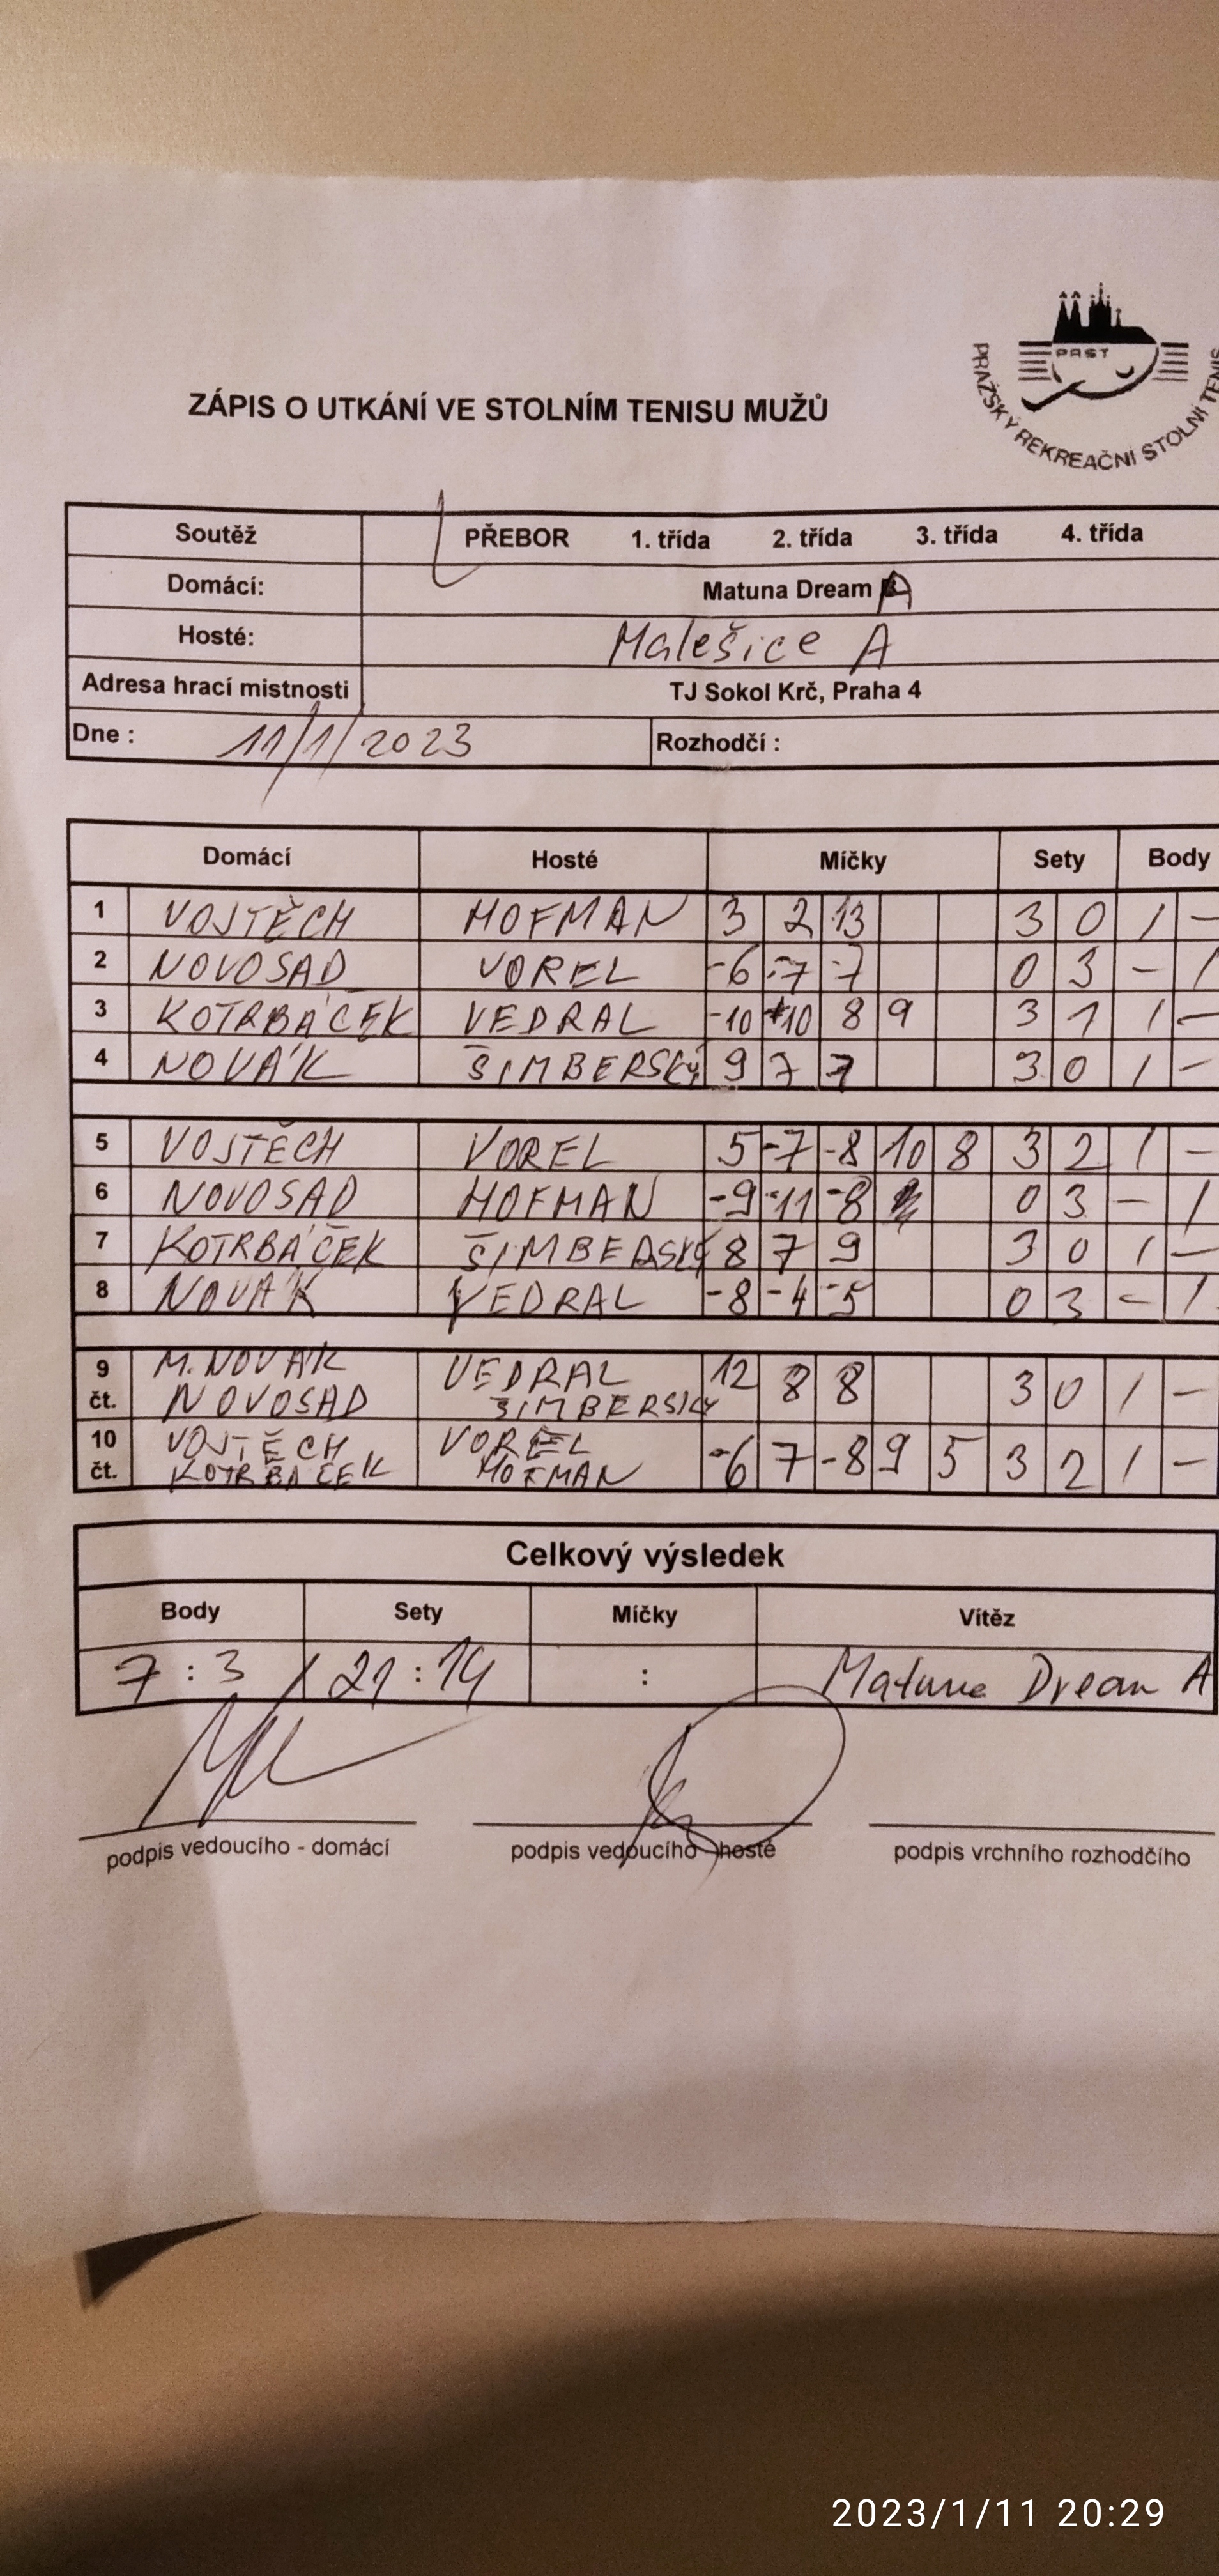 PRST
PRAŽSKÝ REKREAČNÍ STOLNÍ TENIS
ZÁPIS O UTKÁNÍ VE STOLNÍM TENISU MUŽŮ
Soutěž PŘEBOR 1. třída 2. třída 3. třída 4. třída
Domácí: Matuna Dream A
Hosté: Malešice A
Adresa hrací mistnosti TJ Sokol Krč, Praha 4
Dne : 11/1/2023 Rozhodčí :
Domácí Hosté Míčky Sety Body
1 VOJTĚCH HOFMAN 3 2 13 3 0 1 -
2 NOVOSAD VOREL -6 -7 -7 0 3 - 1
3 KOTRBÁČEK VEDRAL -10 10 8 9 3 1 1 -
4 NOVÁK ŠIMBERSKÝ 9 7 7 3 0 1 -
5 VOJTĚCH VOREL 5 -7 -8 10 8 3 2 1 -
6 NOVOSAD HOFMAN -9 -11 -8 0 3 - 1
7 KOTRBÁČEK ŠIMBERSKÝ 8 7 9 3 0 1 -
8 NOVÁK VEDRAL -8 -4 -5 0 3 - 1
9 M. NOVÁK VEDRAL 12 8 8 3 0 1 -
čt. NOVOSAD ŠIMBERSKÝ
10 VOJTĚCH VOREL -6 7 -8 9 5 3 2 1 -
čt. KOTRBÁČEK HOFMAN
Celkový výsledek
Body Sety Míčky Vítěz
7 : 3 21 : 14 : Matuna Dream A
podpis vedoucího - domácí podpis vedoucího - hosté podpis vrchního rozhodčího
2023/1/11 20:29